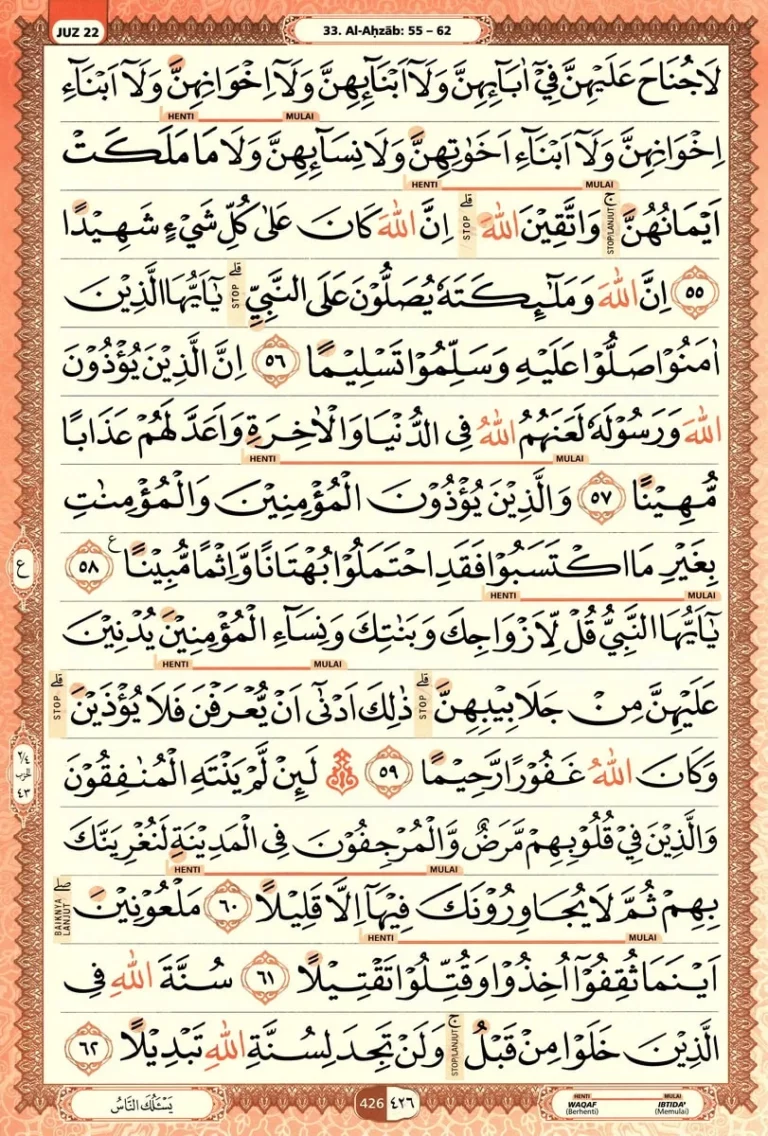 JUZ 22
33. Al-Aḥzāb: 55 – 62
لَا جُنَاحَ عَلَيْهِنَّ فِيْٓ اٰبَاۤىِٕهِنَّ وَلَآ اَبْنَاۤىِٕهِنَّ وَلَآ اِخْوَانِهِنَّ وَلَآ اَبْنَاۤءِ
HENTI MULAI
اِخْوَانِهِنَّ وَلَآ اَبْنَاۤءِ اَخَوٰتِهِنَّ وَلَا نِسَاۤىِٕهِنَّ وَلَا مَا مَلَكَتْ
HENTI MULAI
اَيْمَانُهُنَّ ۚ STOP/LANJUT وَاتَّقِيْنَ اللّٰهَ ۗ STOP اِنَّ اللّٰهَ كَانَ عَلٰى كُلِّ شَيْءٍ شَهِيْدًا
٥٥ اِنَّ اللّٰهَ وَمَلٰۤىِٕكَتَهٗ يُصَلُّوْنَ عَلَى النَّبِيِّ ۗ STOP يٰٓاَيُّهَا الَّذِيْنَ
اٰمَنُوْا صَلُّوْا عَلَيْهِ وَسَلِّمُوْا تَسْلِيْمًا ٥٦ اِنَّ الَّذِيْنَ يُؤْذُوْنَ
اللّٰهَ وَرَسُوْلَهٗ لَعَنَهُمُ اللّٰهُ فِى الدُّنْيَا وَالْاٰخِرَةِ وَاَعَدَّ لَهُمْ عَذَابًا
HENTI MULAI
مُّهِيْنًا ٥٧ وَالَّذِيْنَ يُؤْذُوْنَ الْمُؤْمِنِيْنَ وَالْمُؤْمِنٰتِ
بِغَيْرِ مَا اكْتَسَبُوْا فَقَدِ احْتَمَلُوْا بُهْتَانًا وَّاِثْمًا مُّبِيْنًا ࣖ ٥٨
ع
HENTI MULAI
يٰٓاَيُّهَا النَّبِيُّ قُلْ لِّاَزْوَاجِكَ وَبَنٰتِكَ وَنِسَاۤءِ الْمُؤْمِنِيْنَ يُدْنِيْنَ
HENTI MULAI
عَلَيْهِنَّ مِنْ جَلَابِيْبِهِنَّ ۗ STOP ذٰلِكَ اَدْنٰٓى اَنْ يُّعْرَفْنَ فَلَا يُؤْذَيْنَ ۗ STOP
وَكَانَ اللّٰهُ غَفُوْرًا رَّحِيْمًا ٥٩ ۞ لَىِٕنْ لَّمْ يَنْتَهِ الْمُنٰفِقُوْنَ
٢/٤ الحزب ٤٣
وَالَّذِيْنَ فِيْ قُلُوْبِهِمْ مَّرَضٌ وَّالْمُرْجِفُوْنَ فِى الْمَدِيْنَةِ لَنُغْرِيَنَّكَ
HENTI MULAI
بِهِمْ ثُمَّ لَا يُجَاوِرُوْنَكَ فِيْهَآ اِلَّا قَلِيْلًا ٦٠ مَلْعُوْنِيْنَ ۖ BAIKNYA LANJUT
HENTI MULAI
اَيْنَمَا ثُقِفُوْٓا اُخِذُوْا وَقُتِّلُوْا تَقْتِيْلًا ٦١ سُنَّةَ اللّٰهِ فِى
الَّذِيْنَ خَلَوْا مِنْ قَبْلُ ۚ STOP/LANJUT وَلَنْ تَجِدَ لِسُنَّةِ اللّٰهِ تَبْدِيْلًا ٦٢
يَسْـَٔلُكَ النَّاسُ
426 ٤٢٦
HENTI MULAI
WAQAF IBTIDA'
(Berhenti) (Memulai)